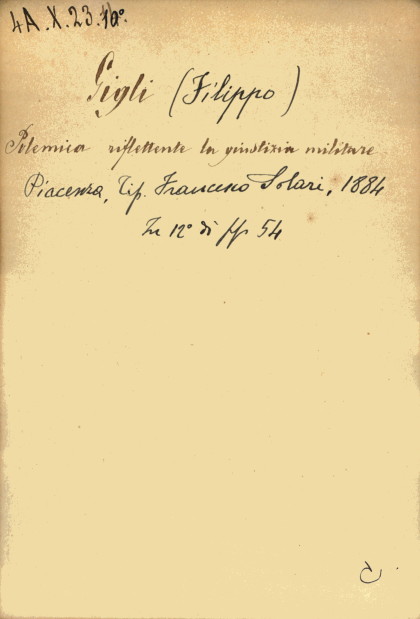 4A.X.23.10°.
Gigli (Filippo)
Polemica riflettente la giustizia militare
Piacenza, Tip. Francesco Solari, 1884
In 12° di pp 54
C